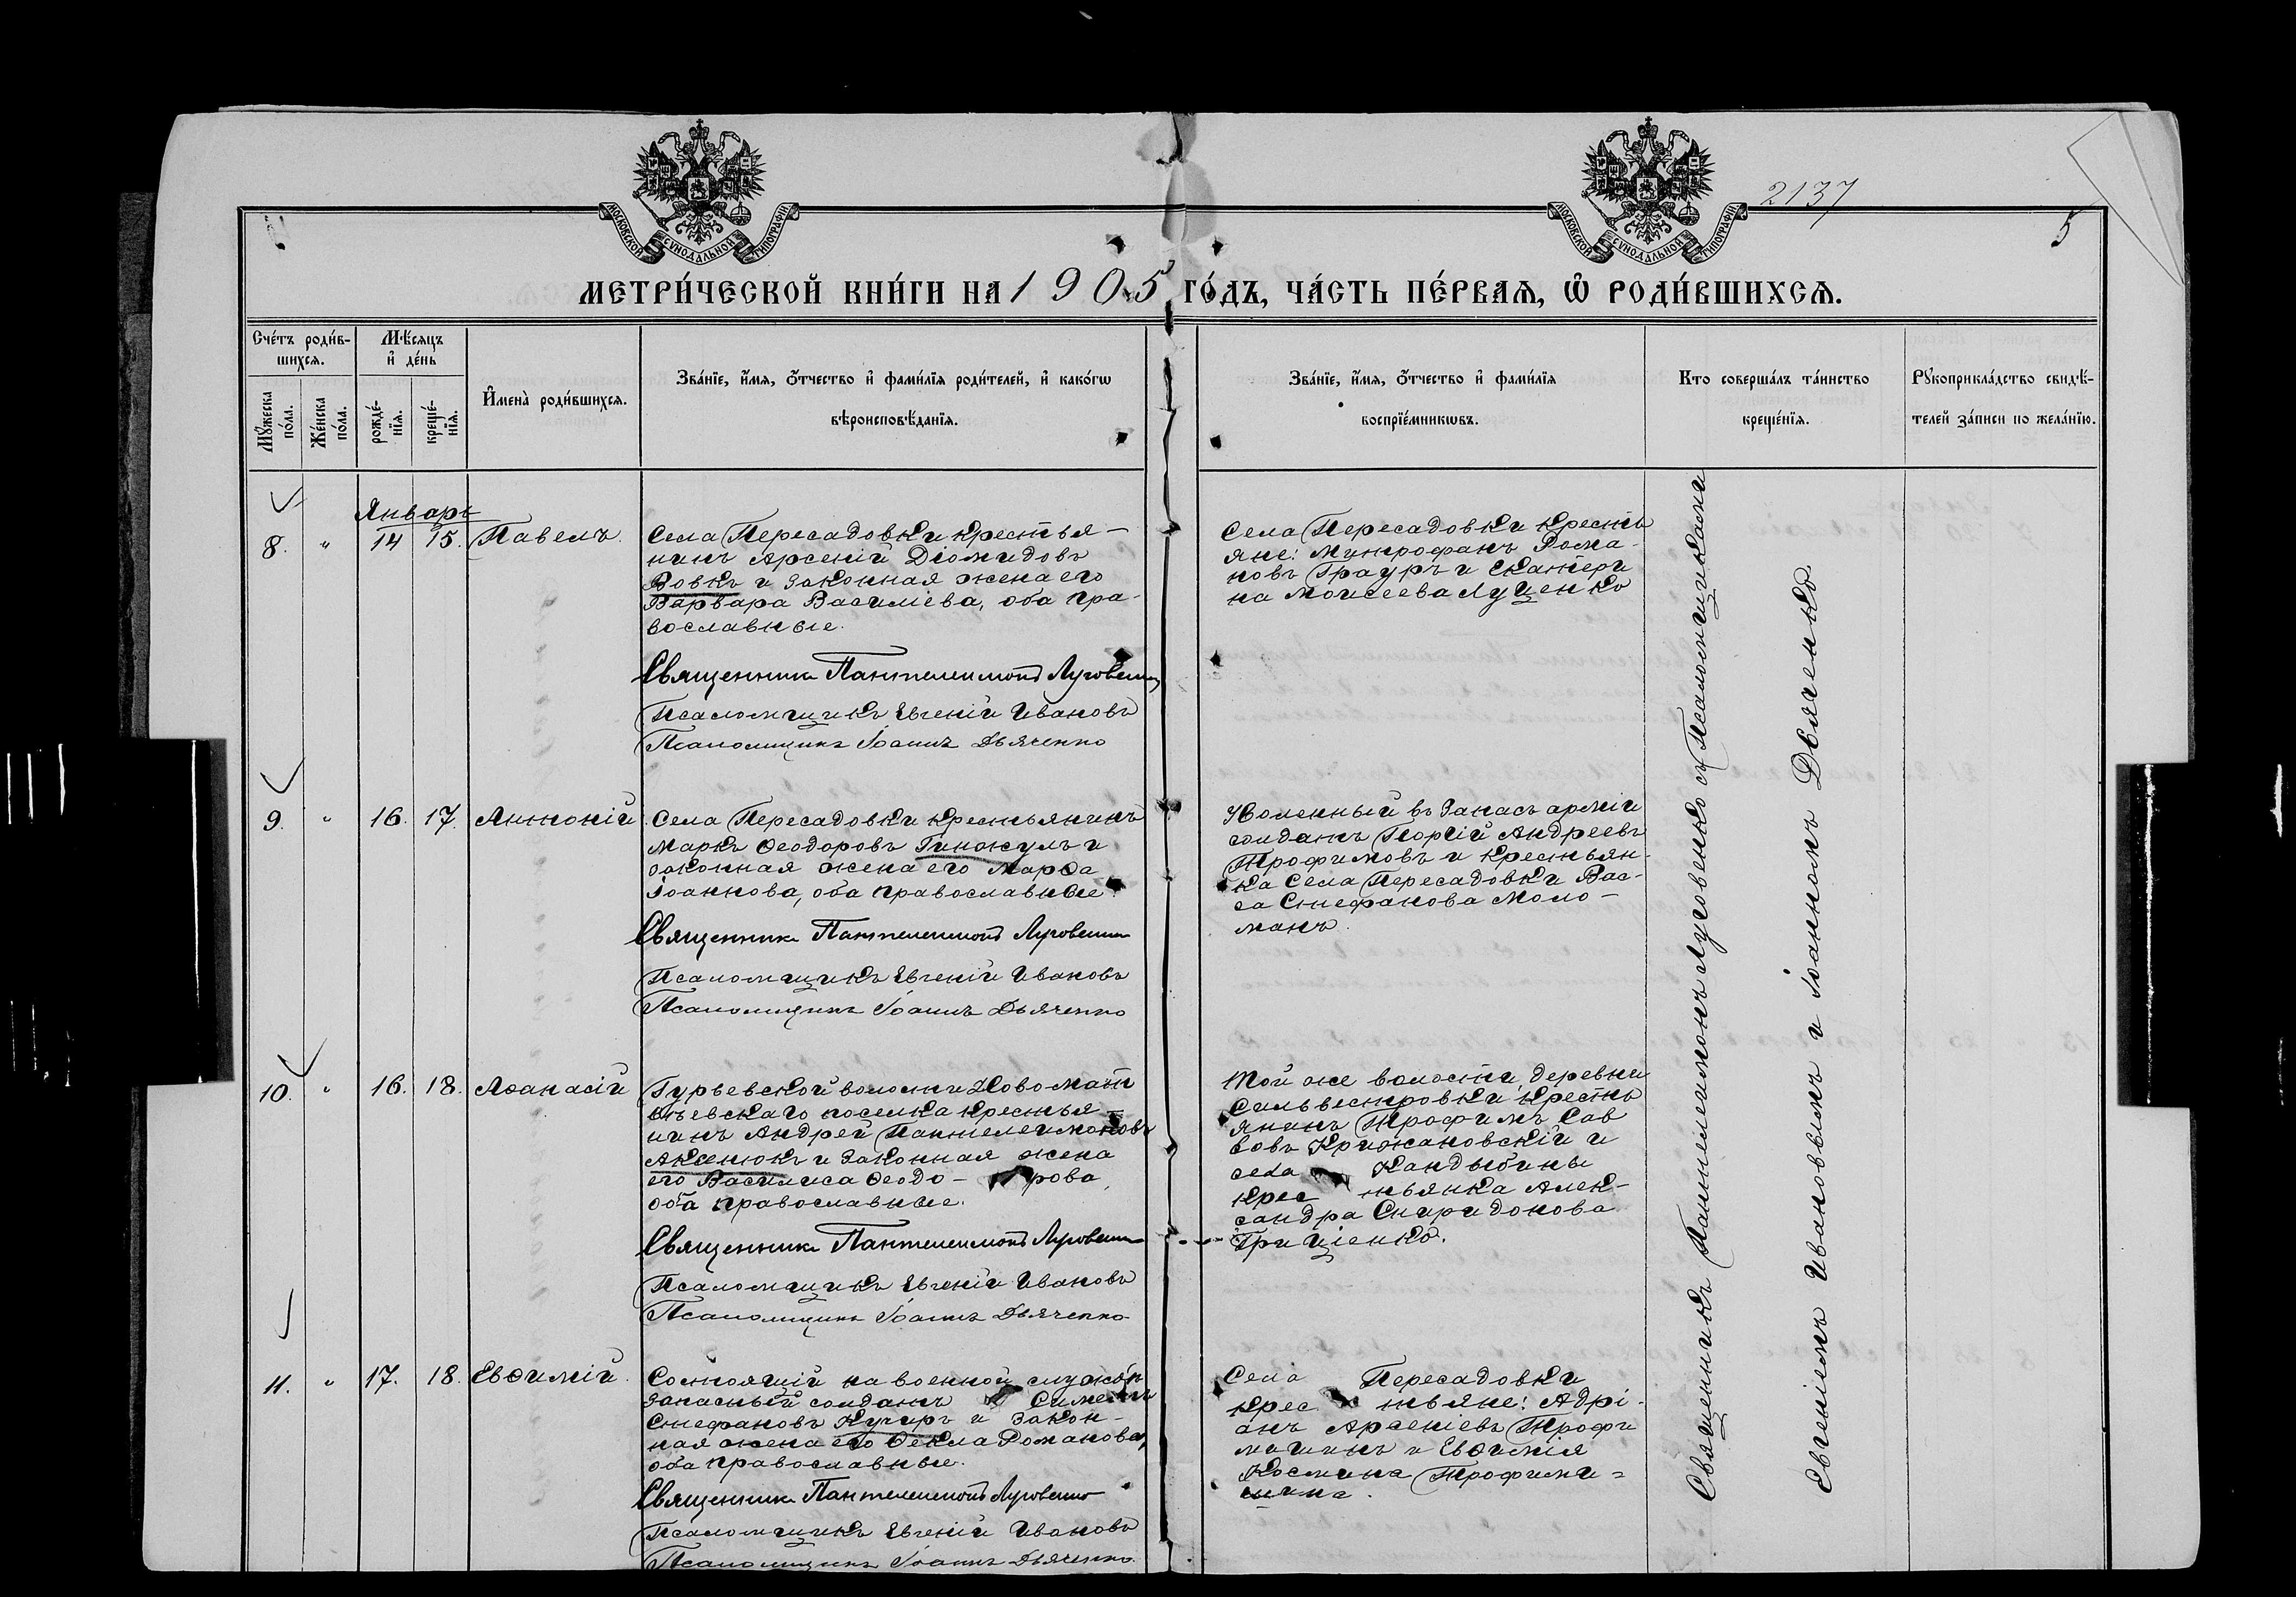 МОСКОВСКОЙ СѴНОДАЛЬНОЙ ТИПОГРАФІИ
МОСКОВСКОЙ СѴНОДАЛЬНОЙ ТИПОГРАФІИ
2137
5
МЕТРИ́ЧЕСКОЙ КНИ́ГИ НА 1905 ГО́ДЪ, ЧА́СТЬ ПЕ́РВАѦ, Ѡ РОДИ́ВШИХСѦ.
Сче́тъ роди́в-
шихся.
Мꙋ́жеска по́ла.
Же́нска по́ла.
Мѣ́сяцъ
и҆ де́нь
рожде́-
нїя.
креще́-
нїя.
И҆мена̀ роди́вшихся.
Зва́нїе, и҆́мя, ѻ҆́тчество и҆ фами́лїя роди́телей, и҆ како́гѡ
вѣроисповѣ́данїя.
Зва́нїе, и҆́мя, ѻ҆́тчество и҆ фами́лїя
воспрїе́мникѡвъ.
Кто соверша́лъ та́инство
креще́нїя.
Рꙋкоприкла́дство свидѣ́-
телей за́писи по жела́нїю.
Январь
8. " 14 15. Павелъ.
Села Пересадовки крестья-
нинъ Арсеній Діомидовъ
Вовкъ и законная жена его
Варвара Василіева, оба пра-
вославные.
Священникъ Пантелеимонъ Луговенко
Псаломщикъ Евгеній Ивановъ
Псаломщикъ Іоаннъ Дьяченко
Села Пересадовки кресть
яне: Митрофанъ Рома-
новъ Грауръ и Екатери
на Моисеева Луценко
9. " 16. 17. Антоній
Села Пересадовки крестьянинъ
Маркъ Ѳеодоровъ Гинжулъ и
законная жена его Марѳа
Іоаннова, оба православные.
Священникъ Пантелеимонъ Луговенко
Псаломщикъ Евгеній Ивановъ
Псаломщикъ Іоаннъ Дьяченко
Уволенный въ Запасъ арміи
солдатъ Георгій Андреевъ
Трофимовъ и крестьян-
ка Села Пересадовки Вас-
са Стефанова Моло-
манъ.
10. " 16. 18. Аѳанасій
Гурьевской волости Ново-Мат
вѣевскаго поселка крестья-
нинъ Андрей Пантелеимоновъ
Аксенюкъ и законная жена
его Василиса Ѳеодо- рова,
оба православные.
Священникъ Пантелеимонъ Луговенко
Псаломщикъ Евгеній Ивановъ
Псаломщикъ Іоаннъ Дьяченко
Той же волости, деревни
Сильвестровки кресть
янинъ Трофимъ Сав
вовъ Крижановскій и
села Кандыбины
крес тьянка Алек-
сандра Спиридонова
Грищенко.
11. " 17. 18. Евѳимій.
Состоящій на военной службѣ
запасный солдатъ Симеонъ
Стефановъ Кучеръ и закон-
ная жена его Ѳекла Романова,
оба православные.
Священникъ Пантелеимонъ Луговенко
Псаломщикъ Евгеній Ивановъ
Псаломщикъ Іоаннъ Дьяченко
Села Пересадовки
крес тьяне: Адрі-
анъ Арсеніевъ Трофи
мишинъ и Евѳимія
Космина Трофими-
шина.
Священникъ Пантелеимонъ Луговенко съ Псаломщиками
Евгеніемъ Ивановымъ и Іоанномъ Дьяченко.